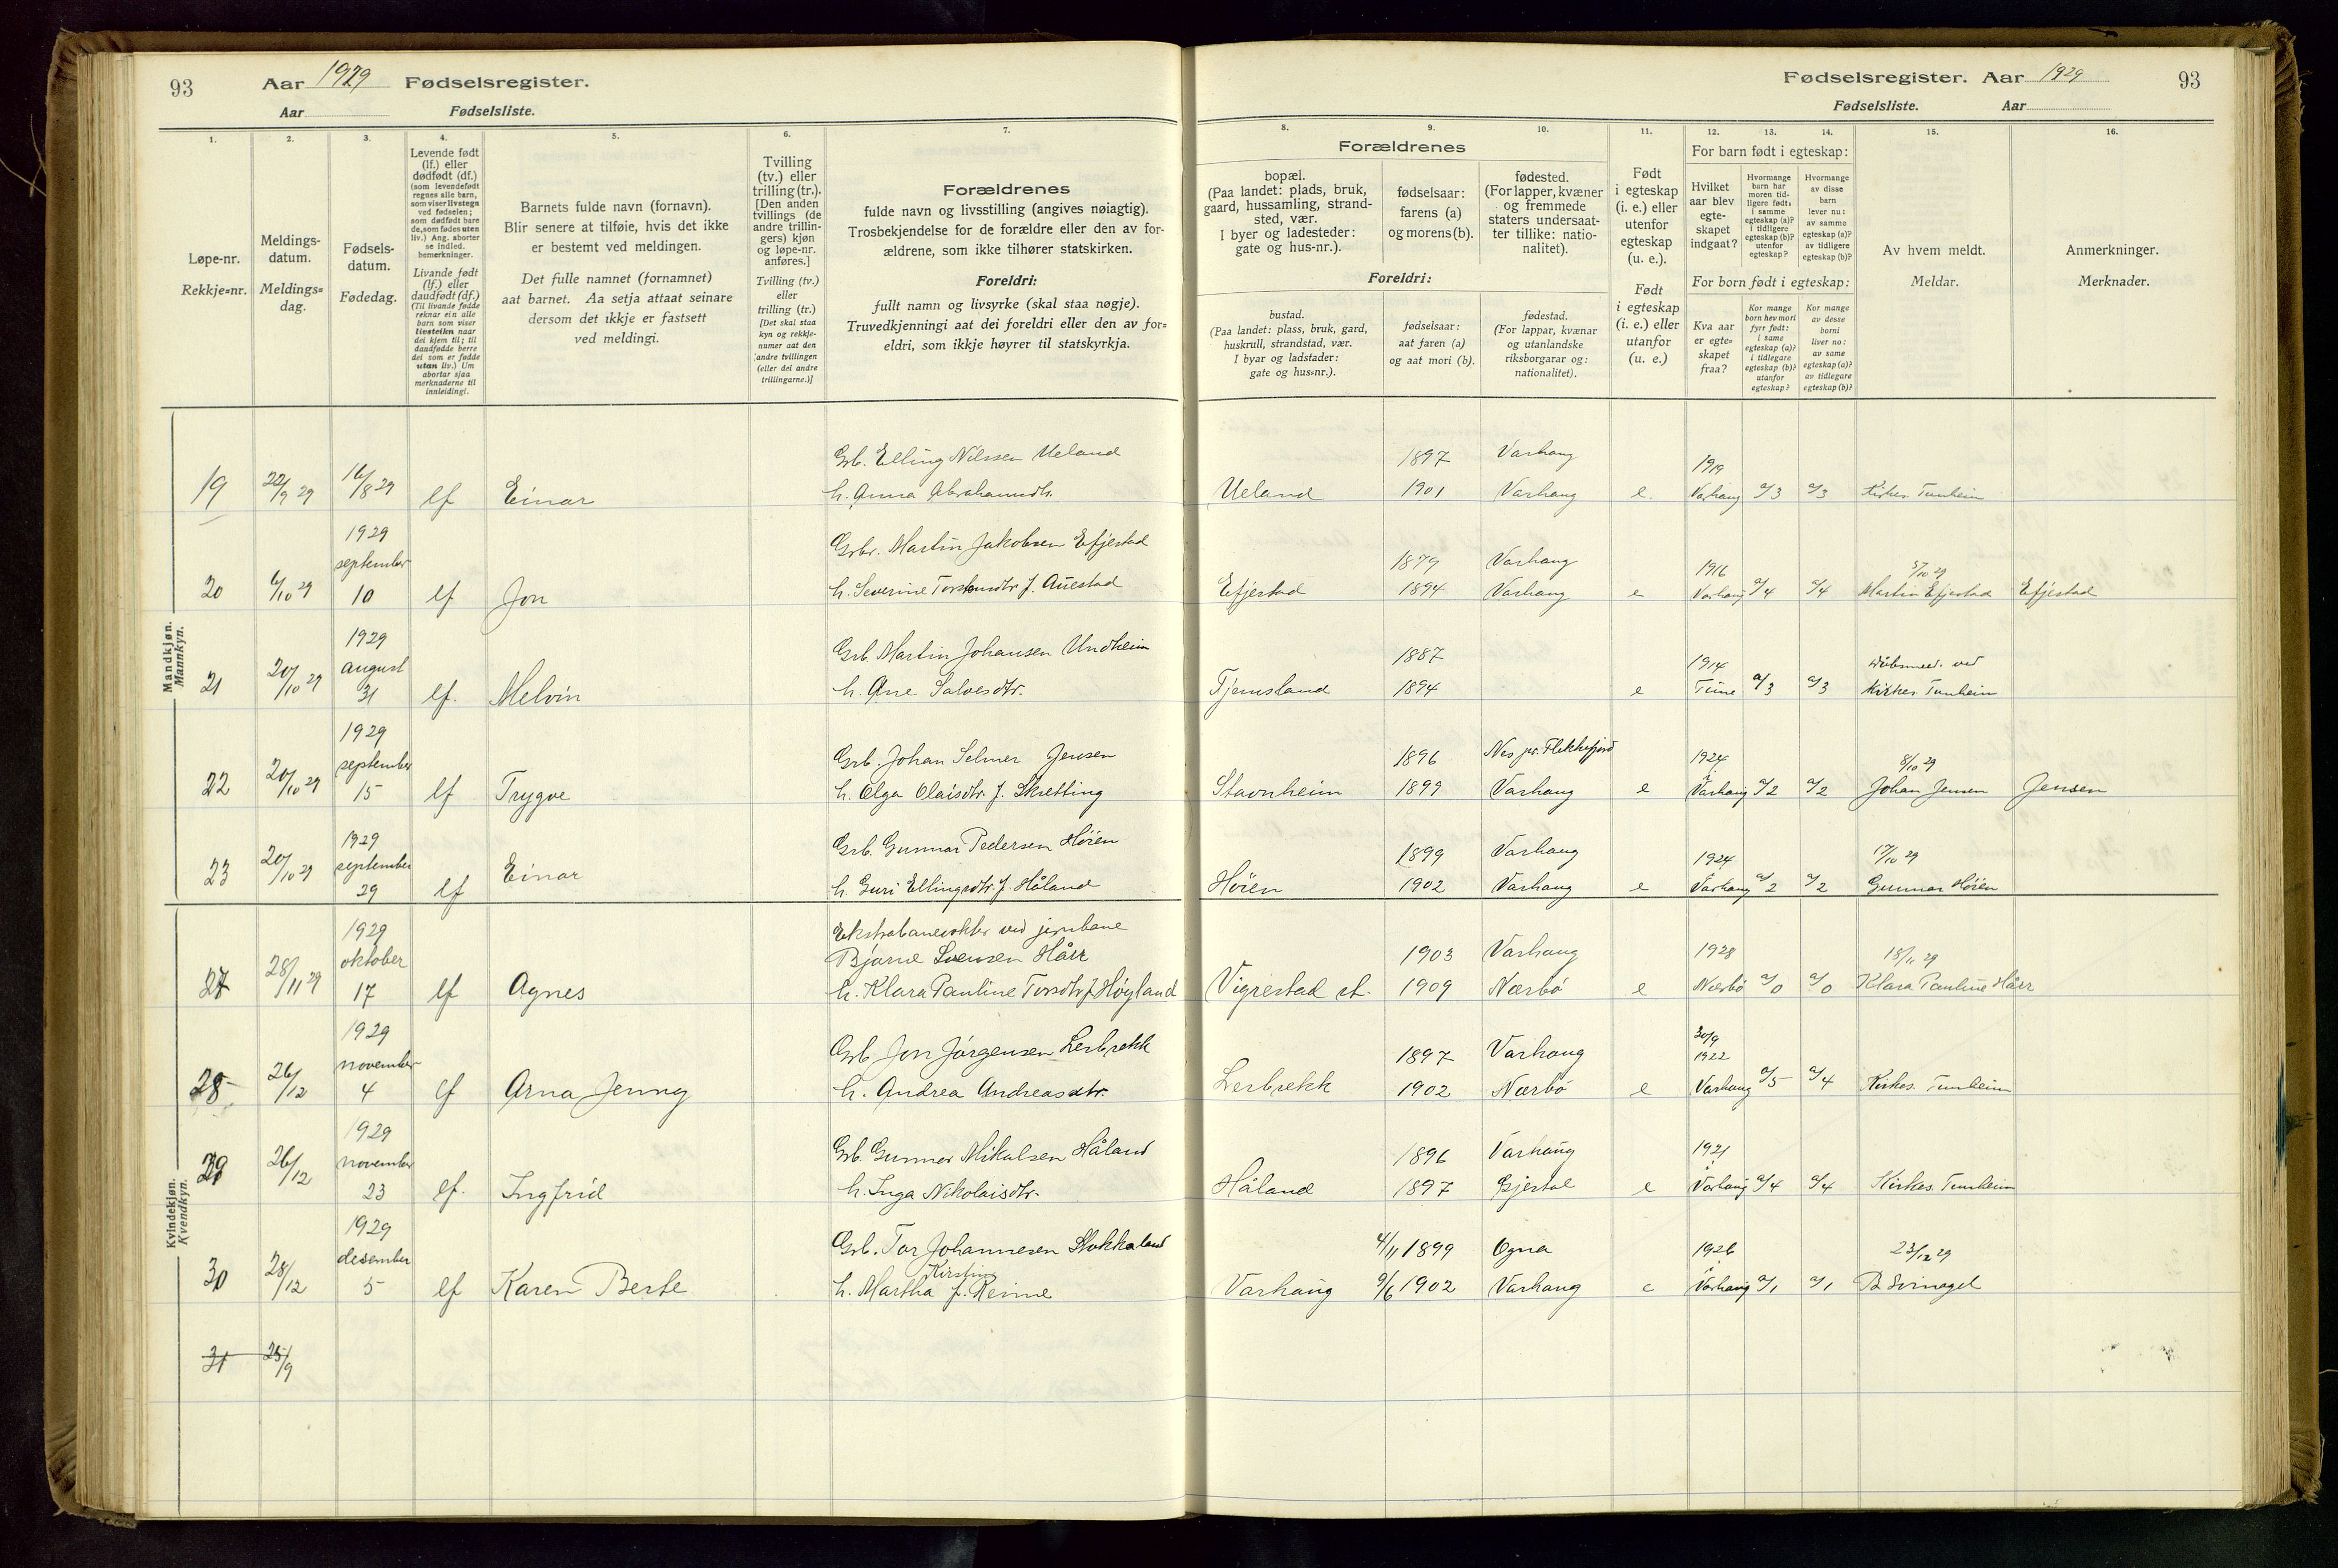 93 Aar 1929 Fødselsregister.
Aar Fødselsliste.
Fødselsregister. Aar 1929 93
Fødselsliste. Aar
1. 2. 3. 4. 5. 6. 7.
Løpe-nr.
Rekkje=nr.
Meldings-
datum.
Meldings=
dag.
Fødsels-
datum.
Fødedag.
Levende født
(lf.) eller
dødfødt (df.)
(som levendefødt
regnes alle barn,
som viser livstegn
ved fødselen;
som dødfødt bare
de, som fødes uten
liv.) Ang. aborter
se indled.
bemerkninger.
Livande født
(lf.) eller
daudfødt (df.)
(Til livande fødde
reknar ein alle
barn som viser
livsteikn naar
dei kjem til; til
daudfødde berre
dei som er fødde
utan liv.) Um
abortar sjaa
merknaderne til
innleidingi.
Barnets fulde navn (fornavn).
Blir senere at tilføie, hvis det ikke
er bestemt ved meldingen.
Det fulle namnet (fornamnet)
aat barnet. Aa setja attaat seinare
dersom det ikkje er fastsett
ved meldingi.
Tvilling
(tv.) eller
trilling (tr.).
[Den anden
tvillings (de
andre trillin-
gers) kjøn
og løpe-nr.
anføres.]
Tvilling (tv.)
eller
trilling (tr.)
[Det skal staa
kyn og rekkje-
numer aat den
andre tvillingen
(eller dei andre
trillingarne.)]
Forældrenes
fulde navn og livsstilling (angives nøiagtig).
Trosbekjendelse for de forældre eller den av for-
ældrene, som ikke tilhører statskirken.
Foreldri:
fullt namn og livsyrke (skal staa nøgje).
Truvedkjenningi aat dei foreldri eller den av for=
eldri, som ikkje høyrer til statskyrkja.
8. 9. 10. 11. 12. 13. 14. 15. 16.
Forældrenes
bopæl.
(Paa landet: plads, bruk,
gaard, hussamling, strand-
sted, vær.
I byer og ladesteder:
gate og hus-nr.).
fødselsaar:
farens (a)
og morens (b).
fødested.
(For lapper, kvæner
og fremmede
staters undersaat-
ter tillike: natio-
nalitet).
Foreldri:
bustad.
(Paa landet: plass, bruk, gard,
huskrull, strandstad, vær.
I byar og ladstader:
gate og hus=nr.).
fødselsaar:
aat faren (a)
og aat mori (b).
fødestad.
(For lappar, kvænar
og utanlandske
riksborgarar og:
nationalitet).
Født
i egteskap
(i. e.) eller
utenfor
egteskap
(u. e.).
Født
i egteskap
(i. e.) eller
utanfor
(u. e.)
For barn født i egteskap:
Hvilket
aar blev
egte-
skapet
indgaat?
Hvormange
barn har
moren tid-
ligere født:
i samme
egteskap (a)?
i tidligere
egteskap (b)?
utenfor
egteskap?
Hvormange
av disse
barn
lever nu:
av samme
egteskap (a)?
av tidligere
egteskap (b)?
For born født i egteskap:
Kva aar
er egte=
skapet
fraa?
Kor mange
born hev mori
fyrr født:
i same
egteskap (a)?
i tidlegare
egteskap (b)?
utanfor
egteskap?
Kor mange
av desse
borni
liver no:
av same
egteskap (a)?
av tidlegare
egteskap (b)?
Av hvem meldt.
Meldar.
Anmerkninger.
Merknader.
Mandkjøn.
Mannkyn.
19 22/9 29 16/8 29 lf Einar
Grb. Elling Nilssen Ueland
h. Anna Abrahamsdtr.
Ueland 1897 Varhaug
1901 Varhaug e. 1919 Varhaug a/3 a/3 Kirkes. Tunheim
20 6/10 29 1929 september 10 lf Jon
Grbr. Martin Jakobsen Efjestad
h. Severine f. Auestad
Efjestad 1879 Varhaug
1894 Varhaug e 1916 Varhaug a/4 a/4 5/10 29 Martin Efjestad Efjestad
21 20/10 29 1929 august 31 lf. Melvin
Grb. Martin Johansen Undheim
h. Ane Salvesdtr.
Tjemsland 1887
1894 e 1914 Time a/3 a/3 ved Kirkes. Tunheim
22 20/10 29 1929 september 15 lf Trygve
Grb. Johan Selmer Jensen
h. Olga Olaisdtr. f. Skretting
Stavnheim 1896 Nes pr. Flekkefjord
1899 Varhaug e 1924 Varhaug a/2 a/2 8/10 29 Johan Jensen Jensen
23 20/10 29 1929 september 29 lf Einar
Grb. Gunnar Pedersen Høien
h. Guri Ellingsdtr. f. Håland
Høien 1899 Varhaug
1902 Varhaug e 1924 Varhaug a/2 a/2 17/10 29 Gunnar Høien
Kvindekjøn.
Kvendkyn.
27 28/11 29 1929 oktober 17 lf Agnes
Ekstrabanevokter ved jernbane
Bjarne Svensen Hårr
h. Klara Pauline Torsdtr f. Høyland
Vigrestad st. 1903 Varhaug
1909 Nærbø e 1928 Nærbø a/0 a/0 18/11 29 Klara Pauline Hårr
28 26/12 1929 november 4 lf Arna Jenny
Grb Jon Jørgensen Lerbrekk
h. Andrea Andreasdtr.
Lerbrekk 1897 Varhaug
1902 Nærbø e 30/9 1922 Varhaug a/5 a/4 Kirkes. Tunheim
29 26/12 1929 november 23 lf. Ingfrid
Grb. Gunnar Mikalsen Håland
h. Inga Nikolaisdtr.
Håland 1896 Varhaug
1897 Gjestal e 1921 Varhaug a/4 a/4 Kirkes. Tunheim
30 28/12 1929 desember 5 lf Karen Berte
Grb. Tor Johannesen Stokkaland
h. Martha Kirstine f. Reime
Varhaug 4/11 1899 Ogna
9/6 1902 Varhaug e 1926 Varhaug a/1 a/1 23/12 29 B Svinagel
31 25/9